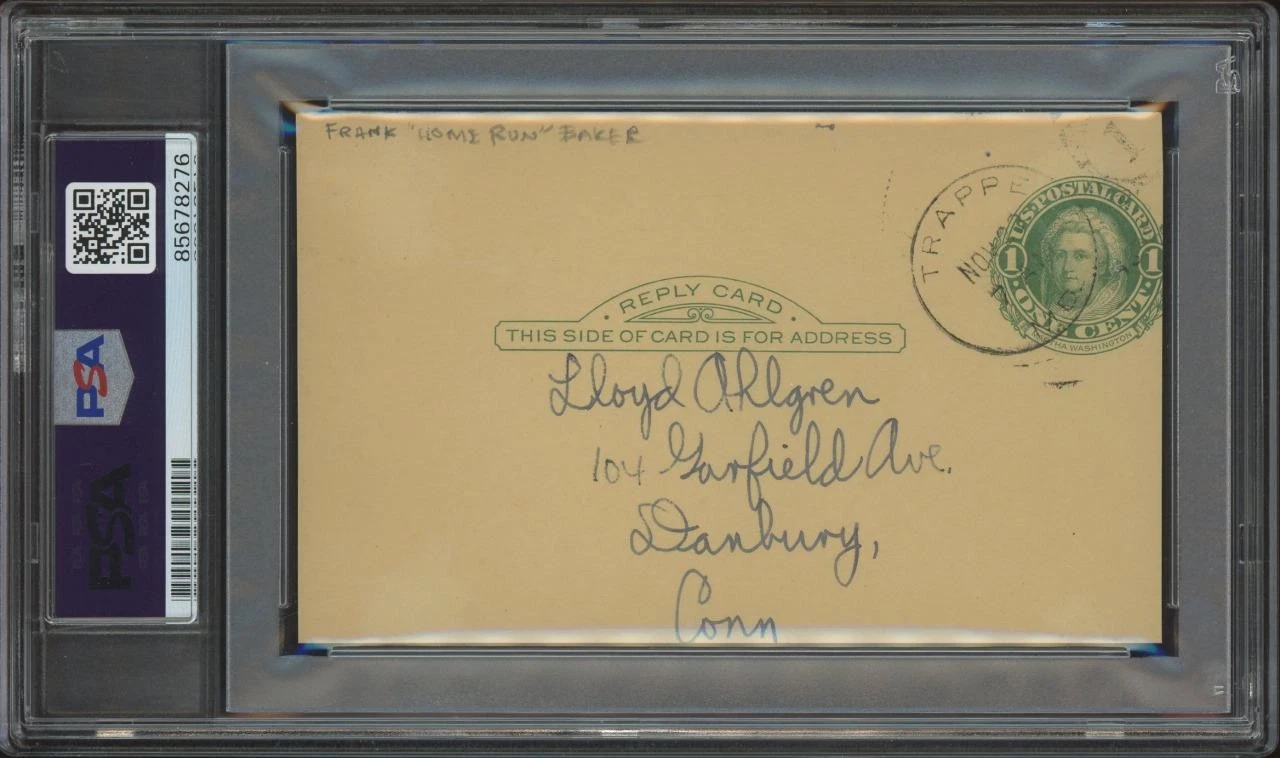 FRANK "HOME RUN" BAKER
TRAPPE
NOV
U.S. POSTAL CARD
1 1
ONE CENT
MARTHA WASHINGTON
REPLY CARD
THIS SIDE OF CARD IS FOR ADDRESS
Lloyd Ahlgren
104 Garfield Ave.
Danbury,
Conn
85678276
PSA
PSA